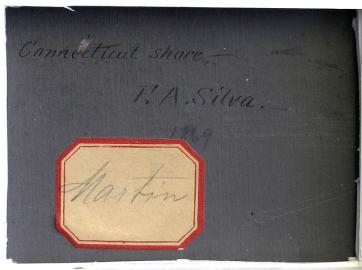 Connecticut shore,—
F. A. Silva.—
1869
Martin